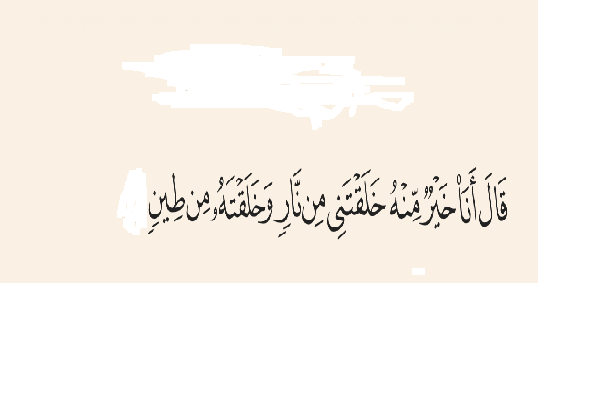 قَالَ أَنَا۠ خَيْرٌ مِّنْهُ خَلَقْتَنِى مِن نَّارٍ وَخَلَقْتَهُۥ مِن طِينٍ